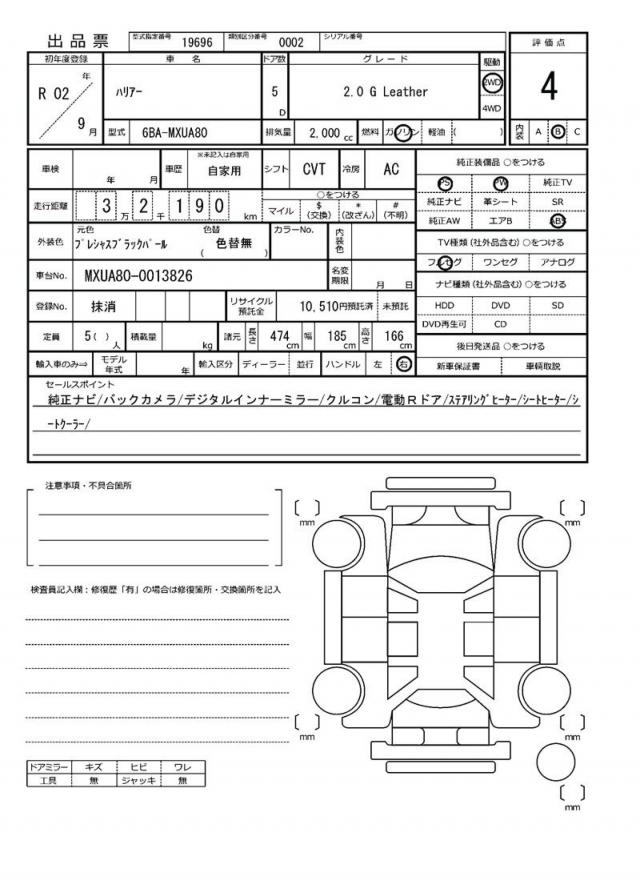 出品票 型式指定番号 19696 類別区分番号 0002 シリアル番号
初年度登録 車名 ドア数 グレード 駆動 評価点
R 02 年 9 月 ハリアー 5 D 2.0 G Leather 2WD 4WD 4
型式 6BA-MXUA80 排気量 2,000 cc 燃料 ガソリン 軽油 ( ) 内装 A B C
車検 年 月 車歴 ※未記入は自家用 自家用 シフト CVT 冷房 AC
走行距離 3 万 2 千 1 9 0 km ○をつける マイル $ (交換) * (改ざん) # (不明)
外装色 元色 プレシャスブラックパール 色替 ( 色替無 ) カラーNo. 内装色
車台No. MXUA80-0013826 名変期限 月 日
登録No. 抹消 リサイクル預託金 10,510円預託済 未預託
定員 5 ( ) 人 積載量 kg 諸元 長さ 474 cm 幅 185 cm 高さ 166 cm
輸入車のみ⇒ モデル年式 年 輸入区分 ディーラー 並行 ハンドル 左 右
純正装備品 ○をつける
PS PW 純正TV
純正ナビ 革シート SR
純正AW エアB ABS
TV種類 (社外品含む) ○をつける
フルセグ ワンセグ アナログ
ナビ種類 (社外品含む) ○をつける
HDD DVD SD
DVD再生可 CD
後日発送品 ○をつける
新車保証書 車輌取説
セールスポイント
純正ナビ/バックカメラ/デジタルインナーミラー/クルコン/電動Rドア/ステアリングヒーター/シートヒーター/シ
ートクーラー/
注意事項・不具合箇所
検査員記入欄:修復歴「有」の場合は修復箇所・交換箇所を記入
ドアミラー キズ ヒビ ワレ
工具 無 ジャッキ 無
mm
mm
mm
mm
mm